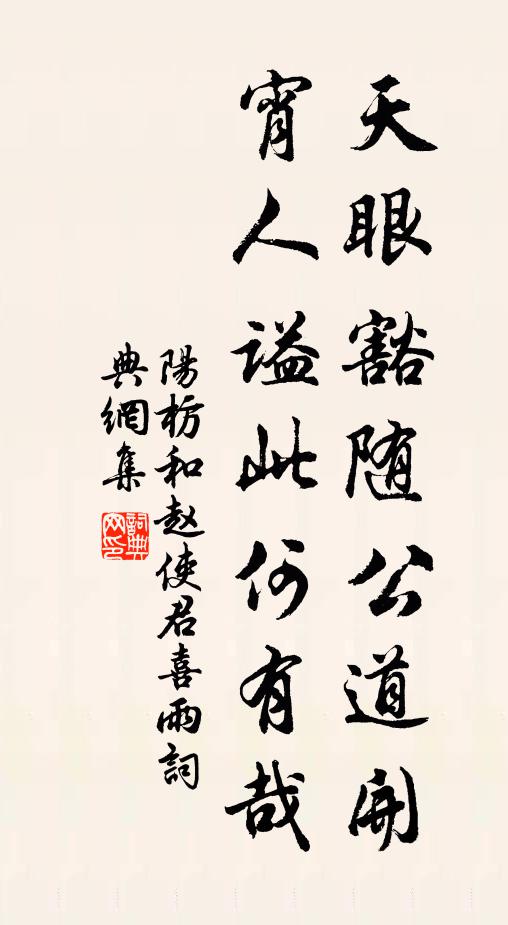 天眼豁随公道開
宵人谥此何有哉
陽枋和赵使君喜雨詞
典網集
詞典
网印